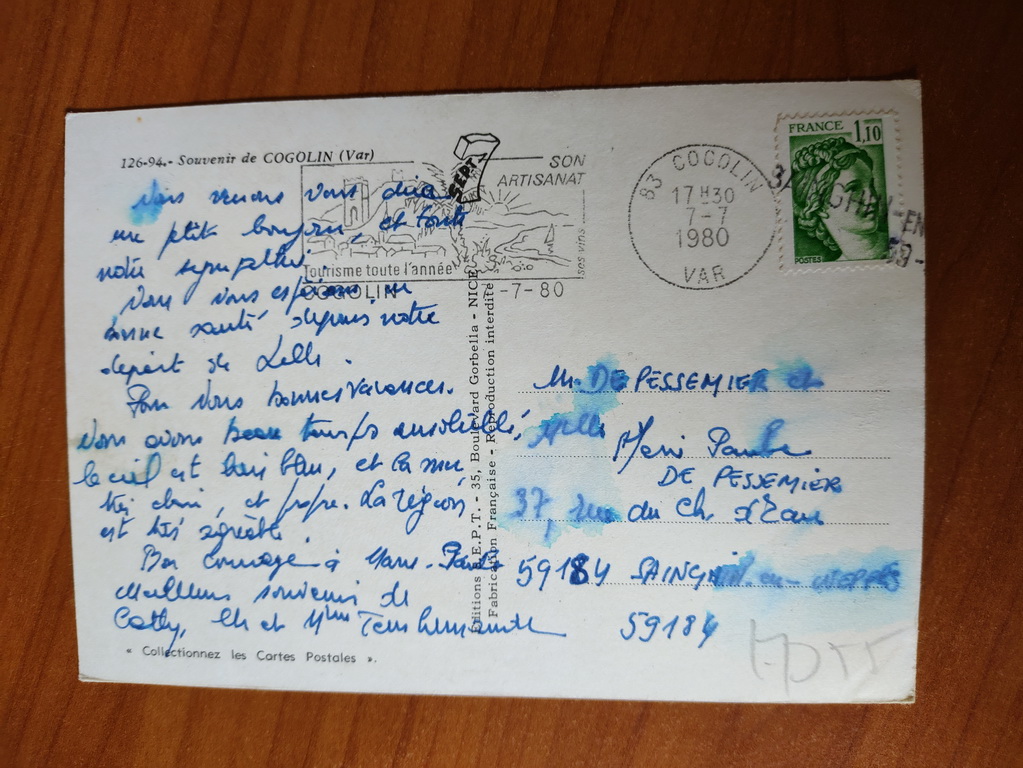 126-94.- Souvenir de COGOLIN (Var)
SEPT
SON
ARTISANAT
ses vins
Tourisme toute l'année
COGOLIN
-7-80
83 COGOLIN
17 H 30
7-7
1980
VAR
FRANCE
1,10
POSTES
EN
59-
venons vous dire
un ptit bonjour, et toute
notre sympathie.
vous espérons en
bonne santé depuis notre
départ de Lille.
Pour vous bonnes vacances.
Nous avons beau temps ensoleillé,
le ciel est bien bleu, et la mer
très claire, et propre. La région
est très agréable.
Bon courage à Marie-Paule
Meilleurs souvenirs de
Cathy, Mr et Mme
« Collectionnez les Cartes Postales ».
Editions S.E.P.T. - 35, Boulevard Gorbella - NICE
Fabrication Française - Reproduction interdite
M. DE PESSEMIER et
Melle Marie Paule
DE PESSEMIER
37, rue du Ch. d'Eau
59184 SAINGHIN-en-WEPPES
59184